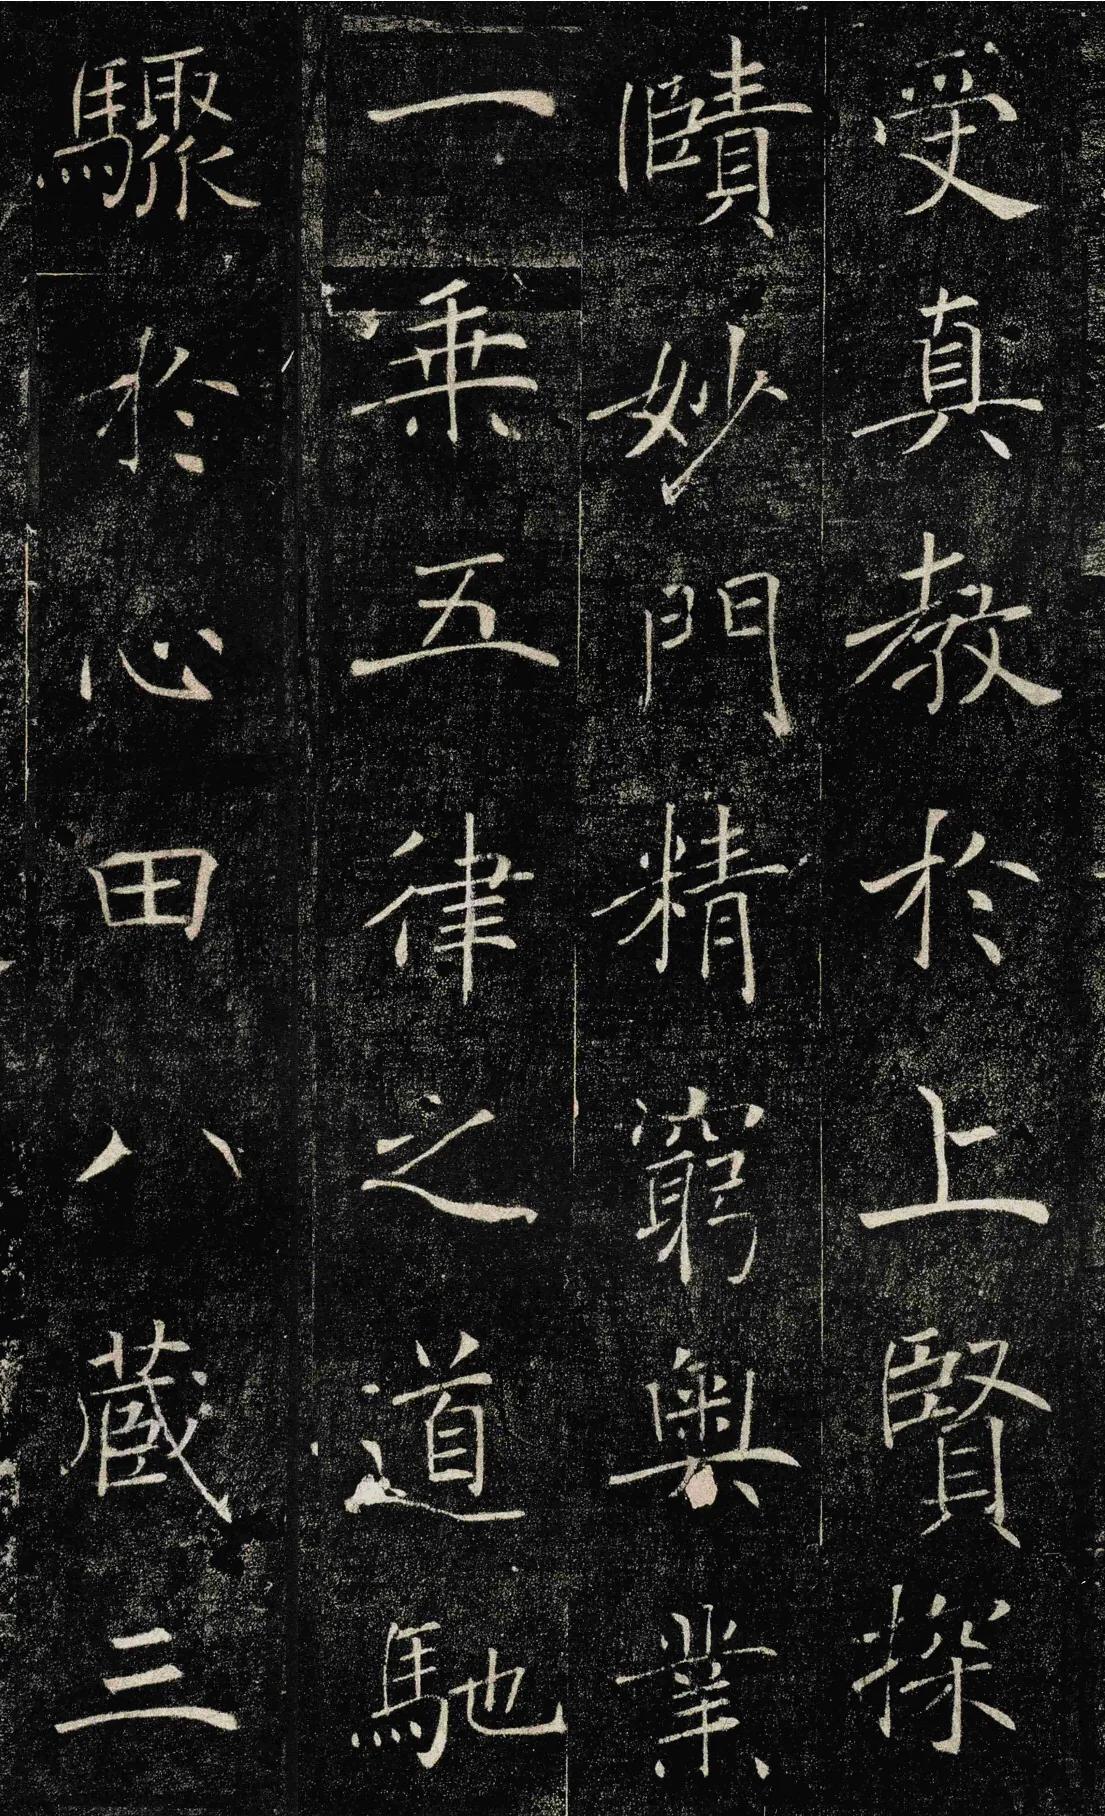 受真教於上賢探
賾妙門精窮奧業
一乗五律之道馳
驟於心田八蔵三